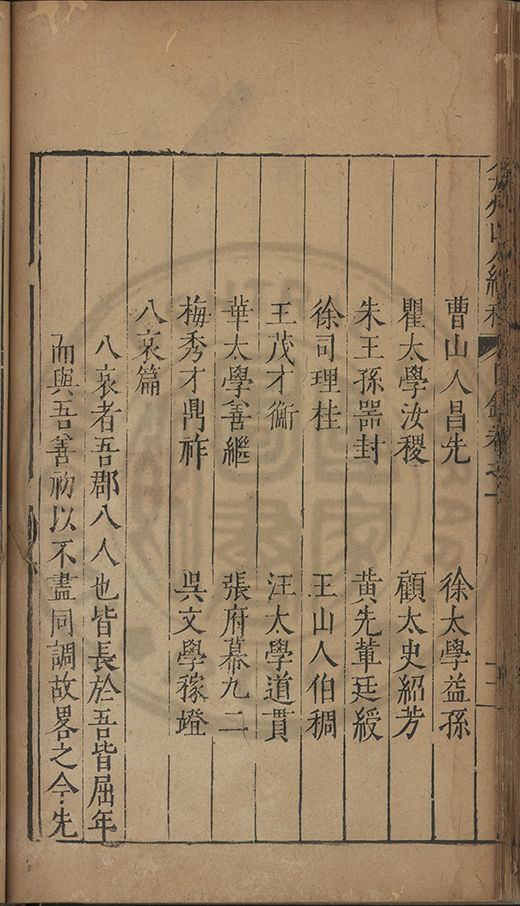 曹山人昌先 徐太學益孫
瞿太學汝稷 顧太史紹芳
朱王孫噐封 黃先軰廷綬
徐司理桂 王山人伯稠
王茂才衡 汪太學道貫
華太學善繼 張府幕九二
梅秀才鼎祚 吳文學稼竳
八哀篇
八哀者吾郡八人也皆長於吾皆屈年
而與吾善初以不盡同調故畧之今先